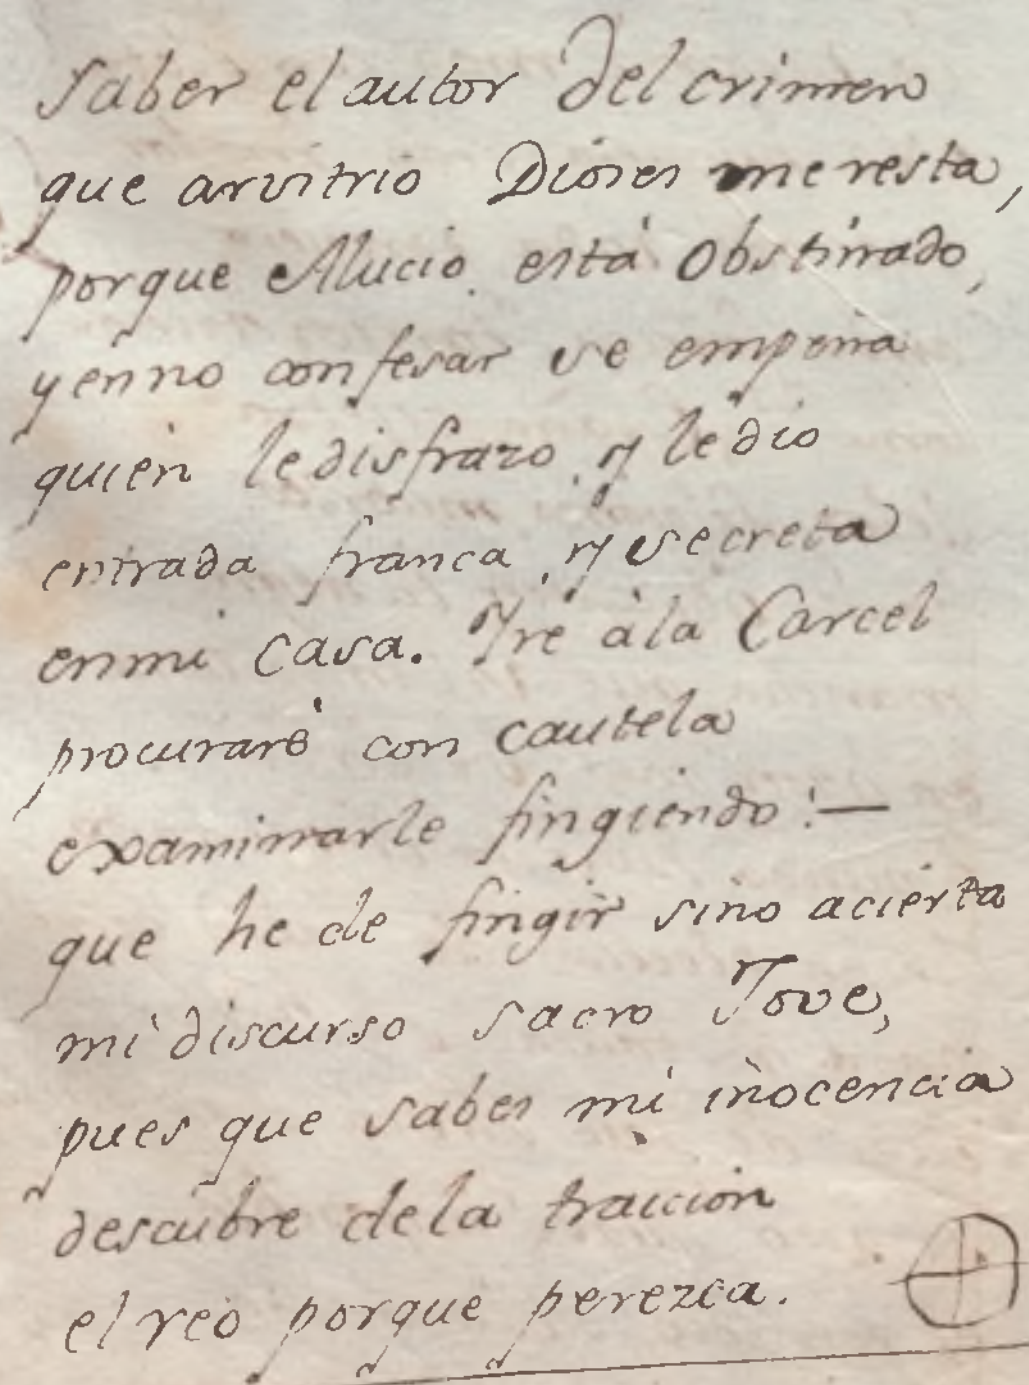 saber el autor del crimen
que arvitrio Dioses me resta,
porque Mucio está obstinado,
y en no confesar se empeña
quien le disfrazo, y le dió
entrada franca, y secreta
en mi casa. Iré à la Carcel
procuraré con cautela
examinarle fingiendo!—
que he de fingir sino acierta
mi discurso sacro Jove,
pues que sabes mi inocencia
descubre de la traicion
el reo porque perezca.